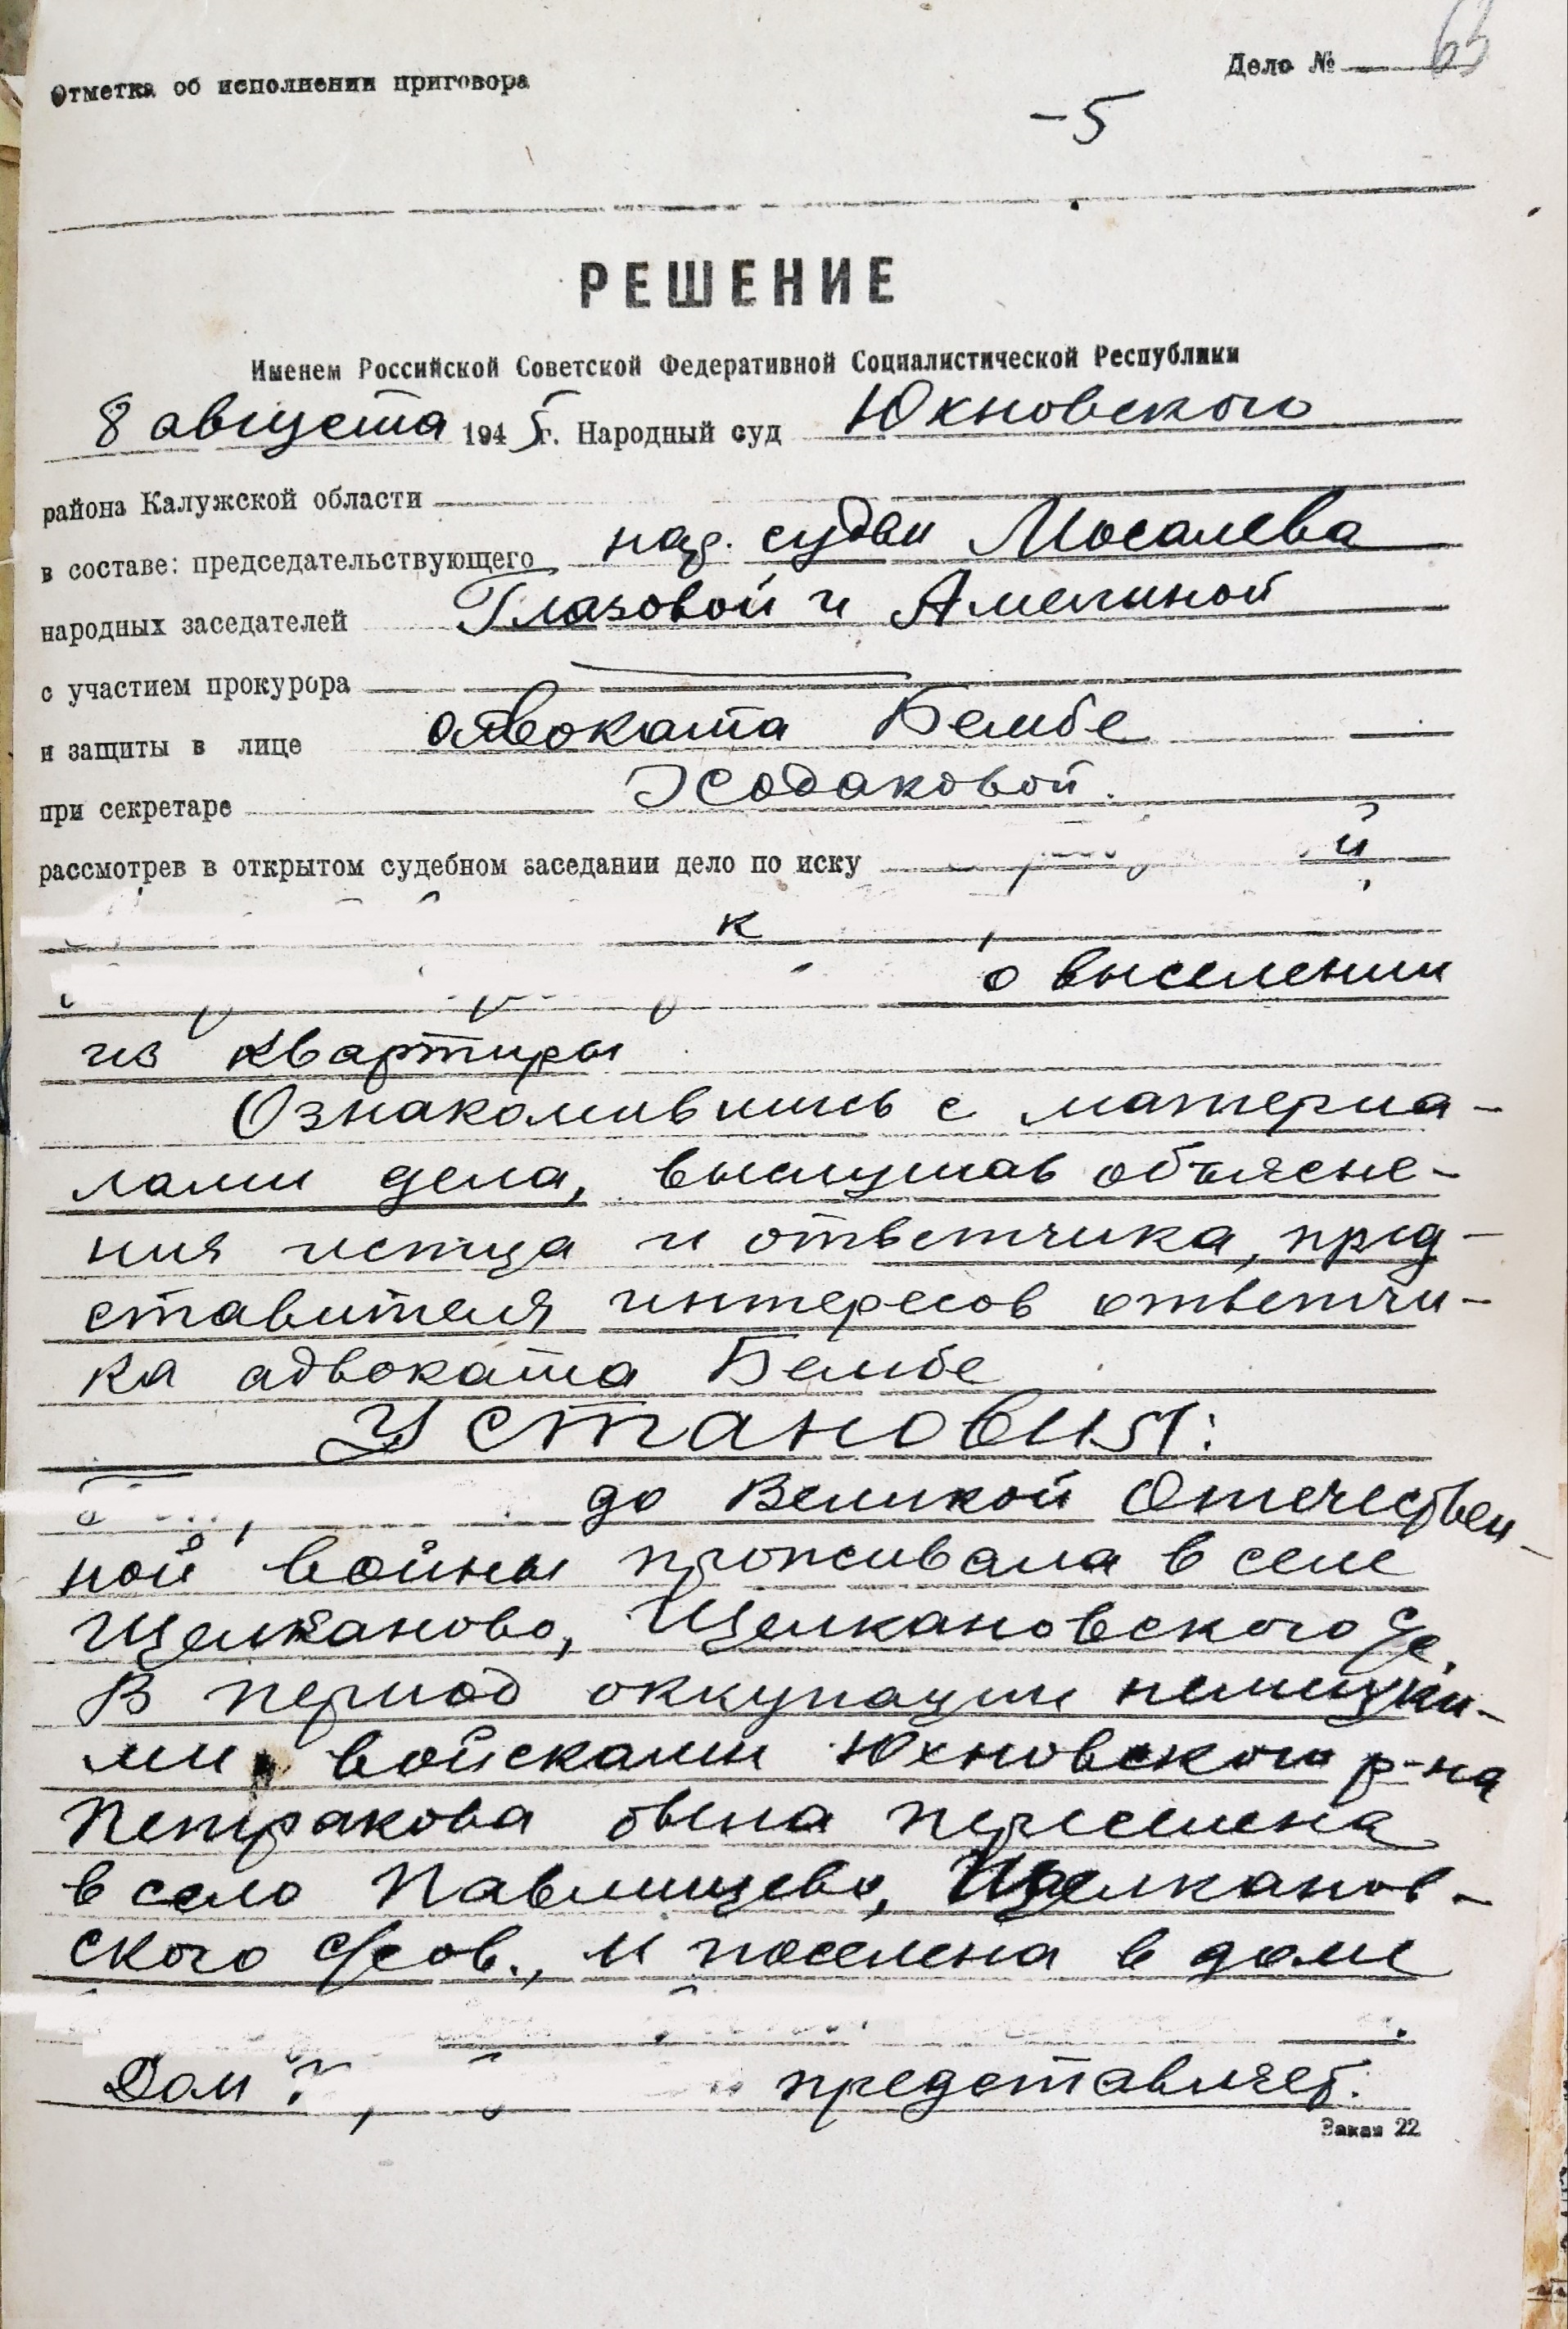 Дело № 63
Отметка об исполнении приговора
-5
РЕШЕНИЕ
Именем Российской Советской Федеративной Социалистической Республики
8 августа 1945 г. Народный суд Юхновского
района Калужской области
в составе: председательствующего нар. судьи Мосалева
народных заседателей Глазовой и Амелиной
с участием прокурора
и защиты в лице адвоката Бембе
при секретаре Ходаковой.
рассмотрев в открытом судебном заседании дело по иску
к
о выселении
из квартиры
Ознакомившись с материа-
лами дела, выслушав объясне-
ния истца и ответчика, пред-
ставителя интересов ответчи-
ка адвоката Бембе
Установил:
до Великой Отечествен-
ной войны проживала в селе
Щелканово, Щелкановского с/с.
В период оккупации немецки-
ми войсками Юхновского р-на
Петракова была переселена
в село Павлищево, Щелканов-
ского с/сов., и поселена в доме
Дом представляет.
Заказ 22